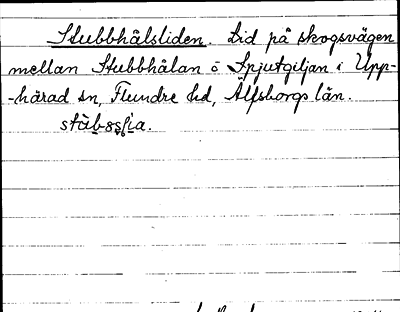 Stubbhålsliden. Lid på skogsvägen
mellan Stubbhålan o Spjutgiljan i Upp-
-härad sn, Flundre hd, Älfsborgs län.